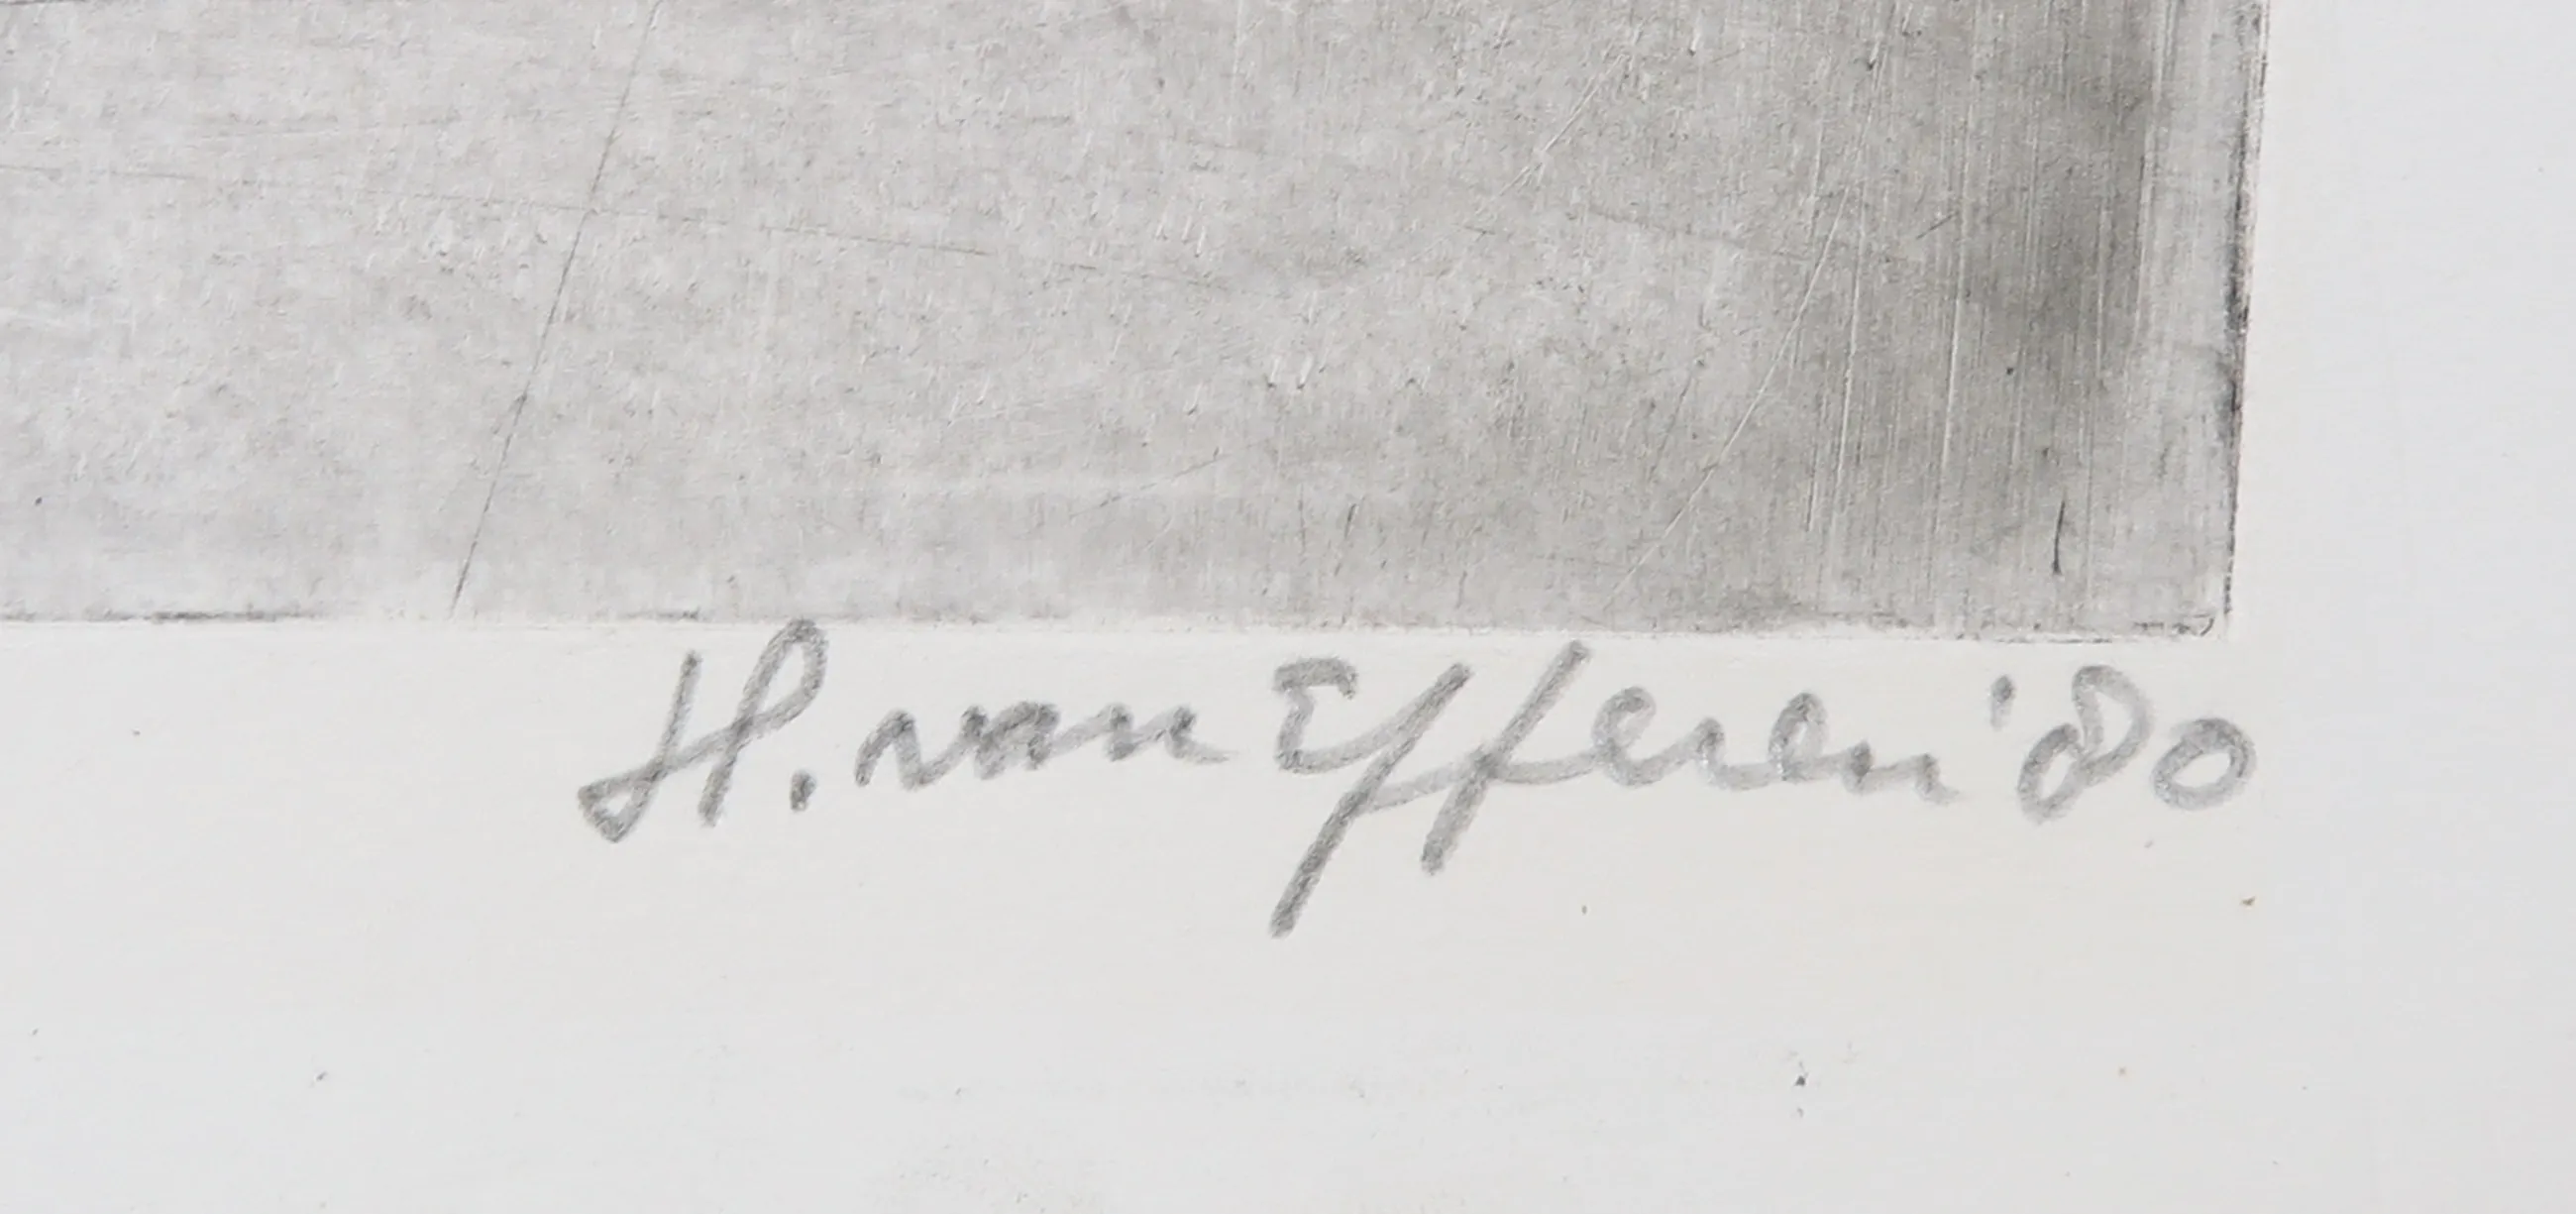 H. van Efferen '80